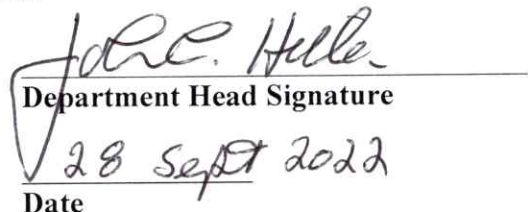 John C. Helle
Department Head Signature
28 Sept 2022
Date